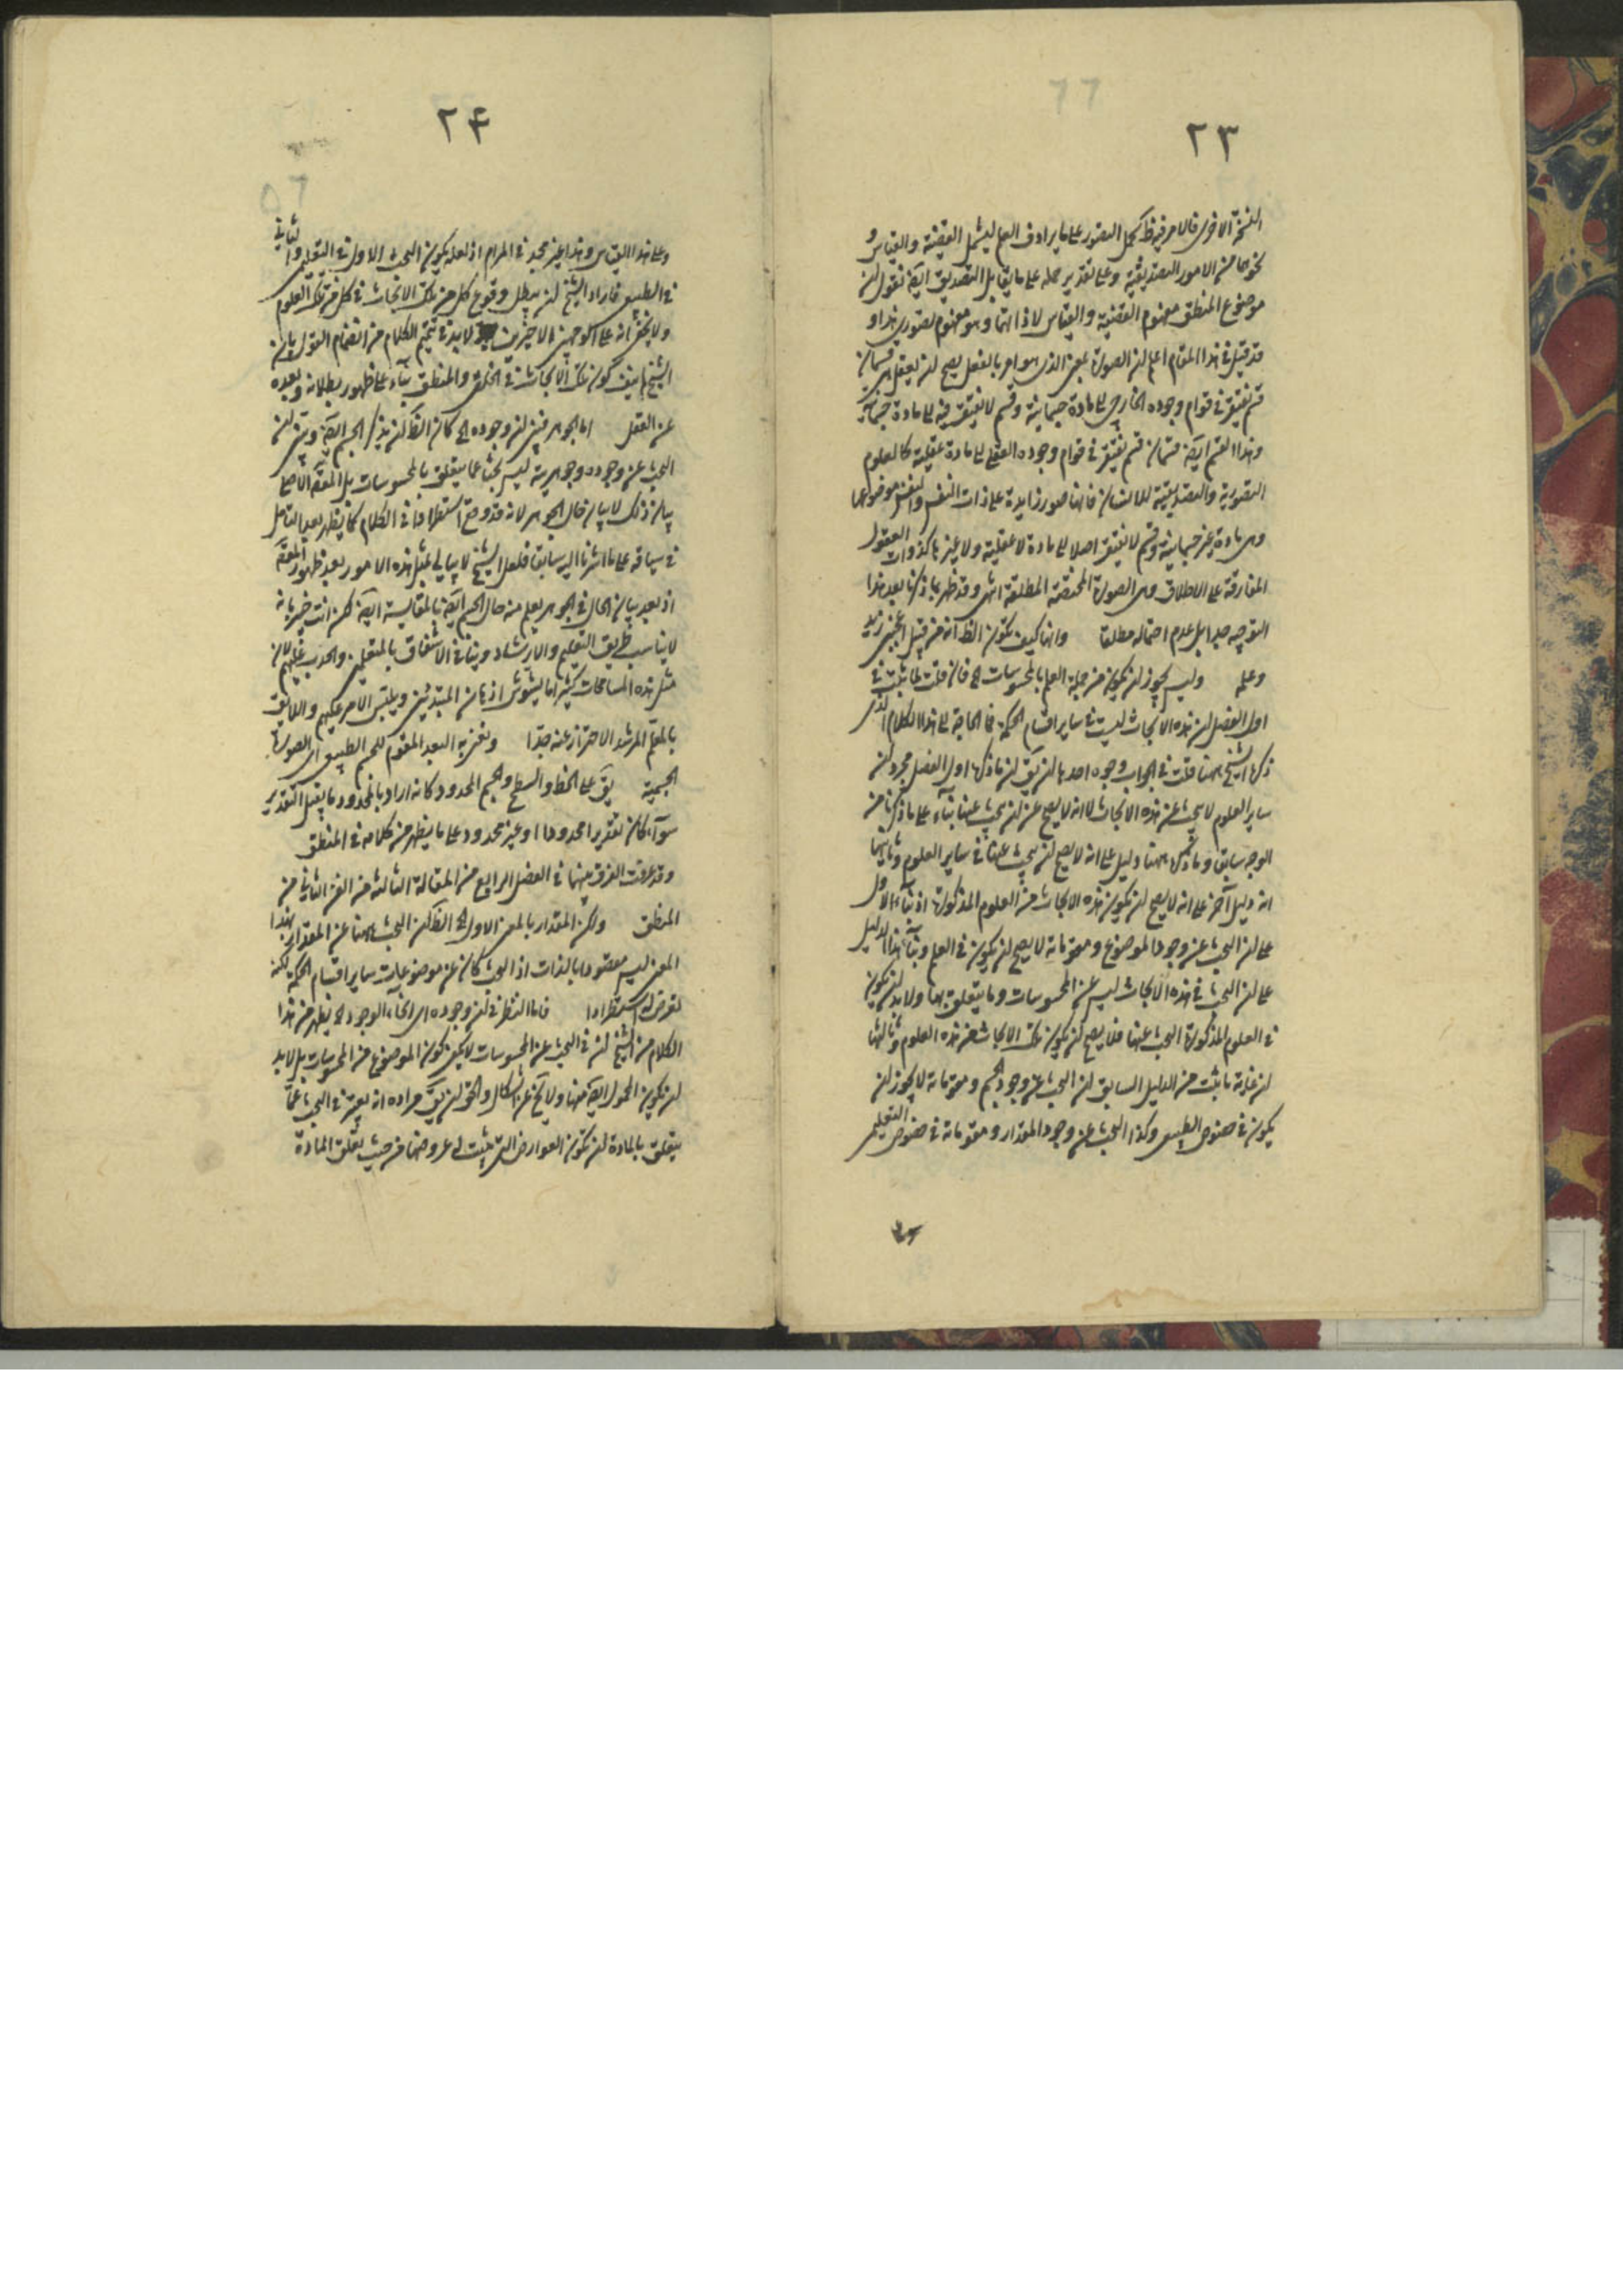 ٢٣
النسخة الاخرى فالامر فيه ظ كحمل التصور على ما يرادف العلم ليشمل القضية والقياس و
نحوهما من الامور التصديقية وعلى تقدير حمله على ما يقابل التصديق ايضا نقول لن
موضوع المنطق مفهوم القضية والقياس لا ذاتهما وهو مفهوم تصورى هذا و
قد قيل فى هذا المقام اعلم لن الصورة بمعنى الذى هو امر بالفعل يصح لن تعقل هى قسمان
قسم تفتقر فى قوام وجوده الخارجى الى مادة جسمانية وقسم لا تفتقر فيه الى مادة جسمانية
وهذا القسم ايضا قسمان قسم يفتقر فى قوام وجوده العقلى الى مادة عقلية كالعلوم
التصورية والتصديقية للانسان فانها صور زايدة على ذات النفس والنفس موضوعها
وهى مادة غير جسمانية وقسم لا تفتقر اصلا الى مادة لا عقلية ولا غيرها كذوات العقول
المفارقة على الاطلاق وهى الصورة المحضة المطلقة انتهى وقد ظهر بما ذكرنا بعد هذا
التوجيه جدا بل عدم احتماله مطلقا وانها كيف تكون الظ انه من قبيل اعجبنى زيد
وعلمه وليس يجوز لن يكون من جملة العلم بالمحسوسات الخ فان قلت لما ثبت فى
اول الفصل لن هذه الابحاث ليست فى ساير اقسام الحكمة فما الحاجة الى هذا الكلام الذى
ذكره الشيخ ههنا قلت فى الجواب وجوه احدها لن يق لن ما ذكره اول الفصل مجرد لن
ساير العلوم لا يبحث عن هذه الابحاث لا انه لا يصح عن لن يبحث عنها بناء على ما ذكرنا من
الوجه سابقا وما ذكره ههنا دليل على انه لا يصح لن يبحث عنها فى ساير العلوم وثانيها
انه دليل آخر على انه لا يصح لن يكون هذه الابحاث من العلوم المذكورة اذ بناء الاول
على لن البحث عن وجود الموضوع ومقوماته لا يصح لن يكون فى العلم وبناء هذا الدليل
على لن البحث فى هذه الابحاث ليس عن المحسوسات وما يتعلق بها ولا بد لن يكون
فى العلوم المذكورة البحث عنها فلا يصح لن يكون تلك الابحاث من هذه العلوم وثالثها
لن غاية ما يثبت من الدليل السابق لن البحث عن وجود الجسم ومقوماته لا يجوز لن
يكون فى خصوص الطبيعى وكذا البحث عن وجود المقدار ومقوماته فى خصوص التعليمى
٢٤
وعلى هذا القياس وهذا غير مجد فى المرام اذ لعله يكون البحث الاول فى التعليمى والثانى
فى الطبيعى فاراد الشيخ لن يبطل وقوع كل من تلك الابحاث فى كل من تلك العلوم
ولا يخفى انه على الوجهين الاخيرين لا بد فى تتميم الكلام من انضمام القول بان
الشيخ لم ينف كون تلك الابحاث فى الخلقى والمنطق بناء على ظهور بطلانه وبعده
عن العقل اما الجوهر فبين لن وجوده الخ كان الظ لن يذكر الجسم ايضا وتبين لن
البحث عن وجوده وجوهريته ليس بحثا عما يتعلق بالمحسوسات بل المقصود الاصلى
بيان ذلك لا بيان حال الجوهر لانه قد وقع استطرادا فى الكلام كما يظهر بعد التامل
فى سياقه على ما اشرنا اليه سابقا فلعل الشيخ لا يبالى بمثل هذه الامور بعد ظهور المقصد
اذ بعد بيان الحال فى الجوهر يعلم منه حال الجسم ايضا بالمقايسة ايضا لكن انت خبير بانه
لا يناسب طريق التعليم والارشاد وينافى الاشفاق بالمتعلمين والحدب عليهم لان
مثل هذه المسامحات كثيرا ما يشوش اذهان المبتدئين ويلتبس الامر عليهم واللايق
بالمعلم المرشد الاحتراز عنه جدا ونعنى به البعد المقوم للجسم الطبيعى اى الصورة
الجسمية يق على الخط والسطح والجسم المحدود كانه اراد بالمحدود ما يقبل التقدير
سواء كان تقديرا محدودا او غير محدود على ما يظهر من كلامه فى المنطق
وقد عرفت الفرق بينهما فى الفصل الرابع من المقالة الثالثة من الفن الثانى من
المنطق ولكن المقدار بالمعنى الاول الخ الظ لن البحث ههنا عن المقدار بهذا
المعنى ليس مقصودا بالذات اذ البحث كان عن موضوعات ساير اقسام الحكمة لكنه
تعرض له استطرادا فاما النظر فى لن وجوده اى انحاء الوجود الخ يظهر من هذا
الكلام من الشيخ لن فى البحث عن المحسوسات لا يكفى كون الموضوع من المحسوسات بل لا بد
لن يكون المحمول ايضا منها ولا يخ عن اشكال والحق لن يق مراده انه يعتبر فى البحث عما
يتعلق بالمادة لن تكون العوارض التى يثبت له عروضها من حيث تعلق المادة